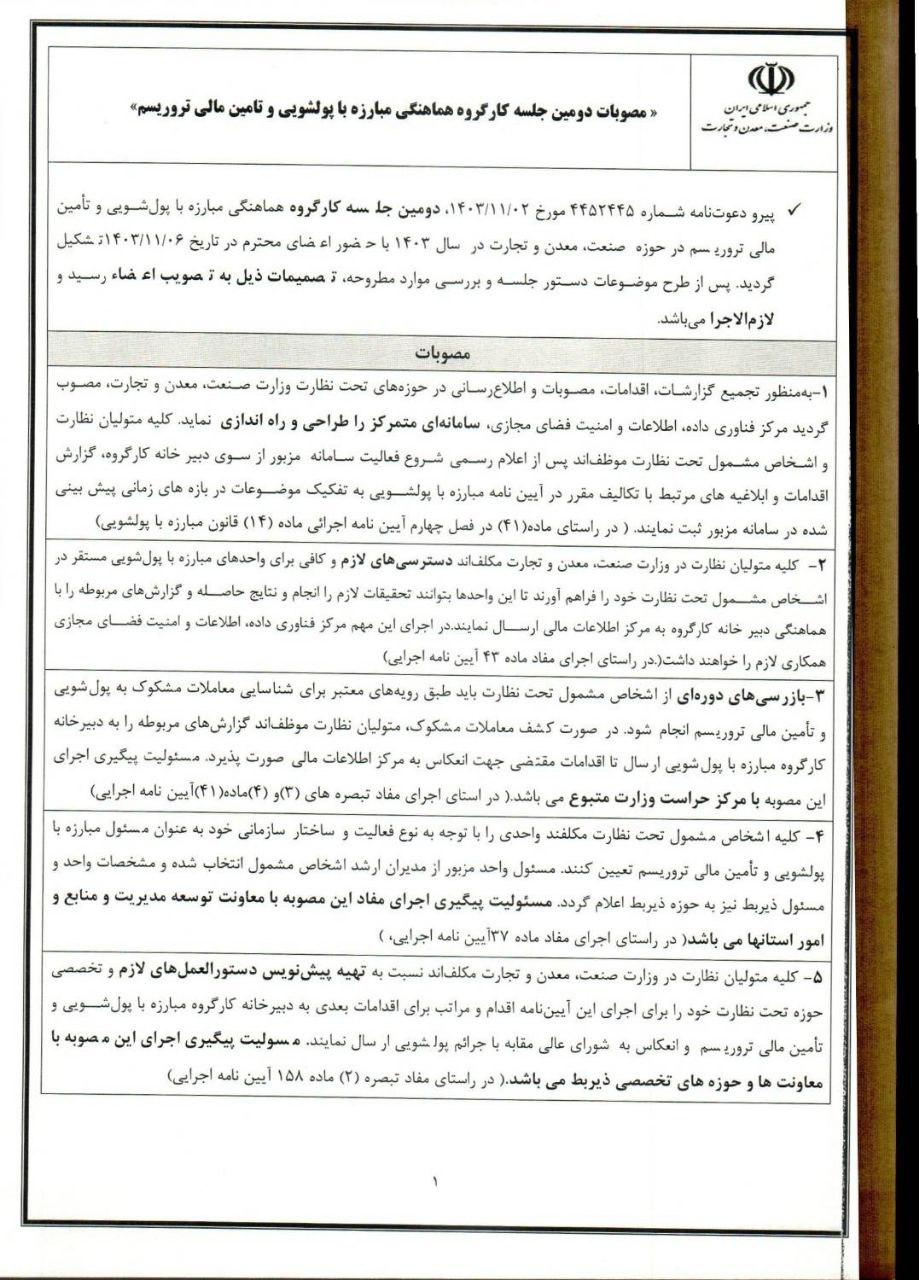 جمهوری اسلامی ایران
وزارت صنعت، معدن و تجارت
« مصوبات دومین جلسه کارگروه هماهنگی مبارزه با پولشویی و تامین مالی تروریسم»
✓ پیرو دعوت‌نامه شماره ۴۴۵۲۴۴۵ مورخ ۱۴۰۳/۱۱/۰۲، دومین جلسه کارگروه هماهنگی مبارزه با پول‌شویی و تأمین
مالی تروریسم در حوزه صنعت، معدن و تجارت در سال ۱۴۰۳ با حضور اعضای محترم در تاریخ ۱۴۰۳/۱۱/۰۶تشکیل
گردید. پس از طرح موضوعات دستور جلسه و بررسی موارد مطروحه، تصمیمات ذیل به تصویب اعضاء رسید و
لازم‌الاجرا می‌باشد.
مصوبات
۱-به‌منظور تجمیع گزارشات، اقدامات، مصوبات و اطلاع‌رسانی در حوزه‌های تحت نظارت وزارت صنعت، معدن و تجارت، مصوب
گردید مرکز فناوری داده، اطلاعات و امنیت فضای مجازی، سامانه‌ای متمرکز را طراحی و راه اندازی نماید. کلیه متولیان نظارت
و اشخاص مشمول تحت نظارت موظف‌اند پس از اعلام رسمی شروع فعالیت سامانه مزبور از سوی دبیر خانه کارگروه، گزارش
اقدامات و ابلاغیه های مرتبط با تکالیف مقرر در آیین نامه مبارزه با پولشویی به تفکیک موضوعات در بازه های زمانی پیش بینی
شده در سامانه مزبور ثبت نمایند. ( در راستای ماده(۴۱) در فصل چهارم آیین نامه اجرائی ماده (۱۴) قانون مبارزه با پولشویی)
۲- کلیه متولیان نظارت در وزارت صنعت، معدن و تجارت مکلف‌اند دسترسی‌های لازم و کافی برای واحدهای مبارزه با پول‌شویی مستقر در
اشخاص مشمول تحت نظارت خود را فراهم آورند تا این واحدها بتوانند تحقیقات لازم را انجام و نتایج حاصله و گزارش‌های مربوطه را با
هماهنگی دبیر خانه کارگروه به مرکز اطلاعات مالی ارسال نمایند.در اجرای این مهم مرکز فناوری داده، اطلاعات و امنیت فضای مجازی
همکاری لازم را خواهند داشت(.در راستای اجرای مفاد ماده ۴۳ آیین نامه اجرایی)
۳-بازرسی‌های دوره‌ای از اشخاص مشمول تحت نظارت باید طبق رویه‌های معتبر برای شناسایی معاملات مشکوک به پول‌شویی
و تأمین مالی تروریسم انجام شود. در صورت کشف معاملات مشکوک، متولیان نظارت موظف‌اند گزارش‌های مربوطه را به دبیرخانه
کارگروه مبارزه با پول‌شویی ارسال تا اقدامات مقتضی جهت انعکاس به مرکز اطلاعات مالی صورت پذیرد. مسئولیت پیگیری اجرای
این مصوبه با مرکز حراست وزارت متبوع می باشد.( در استای اجرای مفاد تبصره های (۳)و (۴)ماده(۴۱)آیین نامه اجرایی)
۴- کلیه اشخاص مشمول تحت نظارت مکلفند واحدی را با توجه به نوع فعالیت و ساختار سازمانی خود به عنوان مسئول مبارزه با
پولشویی و تأمین مالی تروریسم تعیین کنند. مسئول واحد مزبور از مدیران ارشد اشخاص مشمول انتخاب شده و مشخصات واحد و
مسئول ذیربط نیز به حوزه ذیربط اعلام گردد. مسئولیت پیگیری اجرای مفاد این مصوبه با معاونت توسعه مدیریت و منابع و
امور استانها می باشد( در راستای اجرای مفاد ماده ۳۷آیین نامه اجرایی، )
۵- کلیه متولیان نظارت در وزارت صنعت، معدن و تجارت مکلف‌اند نسبت به تهیه پیش‌نویس دستورالعمل‌های لازم و تخصصی
حوزه تحت نظارت خود را برای اجرای این آیین‌نامه اقدام و مراتب برای اقدامات بعدی به دبیرخانه کارگروه مبارزه با پول‌شویی و
تأمین مالی تروریسم و انعکاس به شورای عالی مقابه با جرائم پولشویی ارسال نمایند. مسولیت پیگیری اجرای این مصوبه با
معاونت ها و حوزه های تخصصی ذیربط می باشد.( در راستای مفاد تبصره (۲) ماده ۱۵۸ آیین نامه اجرایی)
۱